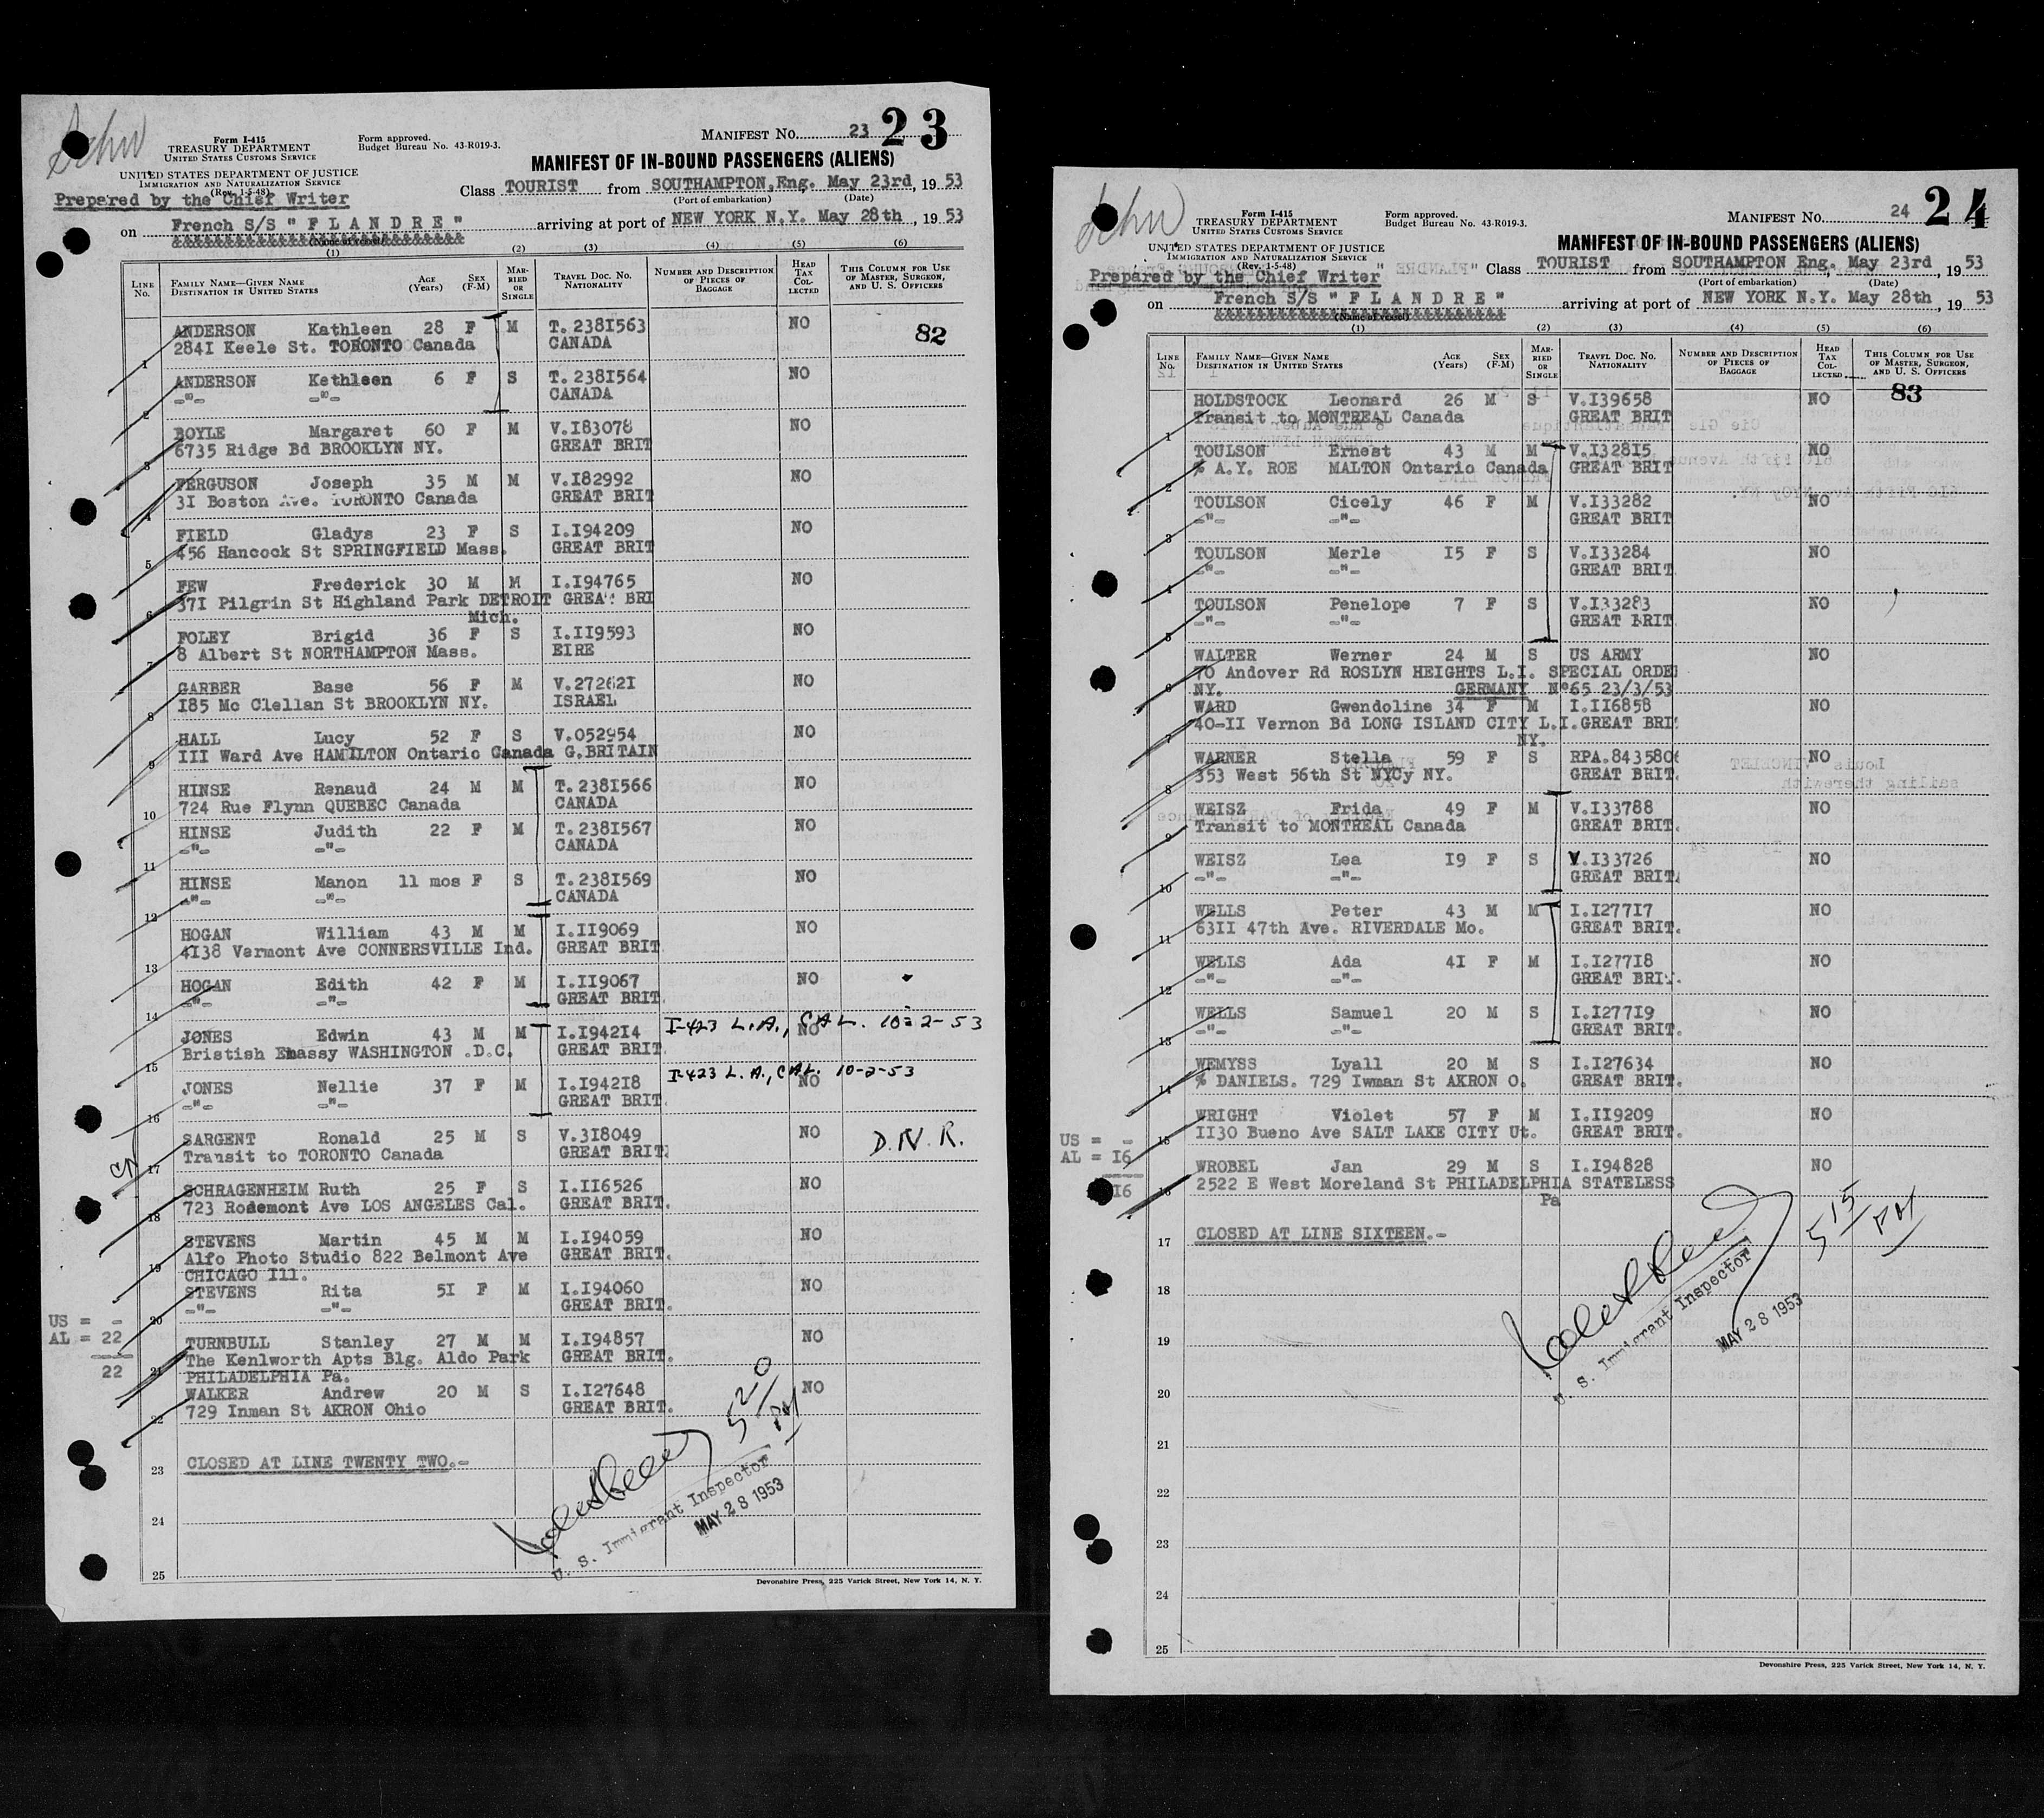 Form I-415
TREASURY DEPARTMENT
UNITED STATES CUSTOMS SERVICE
Form approved.
Budget Bureau No. 43-R019-3.
MANIFEST NO. 23 23
UNITED STATES DEPARTMENT OF JUSTICE
IMMIGRATION AND NATURALIZATION SERVICE
(Rev. 1-5-48)
MANIFEST OF IN-BOUND PASSENGERS (ALIENS)
Prepared by the Chief Writer
Class TOURIST from SOUTHAMPTON, Eng. May 23rd, 1953
(Port of embarkation) (Date)
on French S/S " F L A N D R E " arriving at port of NEW YORK N.Y. May 28th, 1953
(Name of vessel)
(1) (2) (3) (4) (5) (6)
LINE NO. FAMILY NAME—GIVEN NAME DESTINATION IN UNITED STATES AGE (Years) SEX (F-M) MARRIED OR SINGLE TRAVEL DOC. NO. NATIONALITY NUMBER AND DESCRIPTION OF PIECES OF BAGGAGE HEAD TAX COLLECTED THIS COLUMN FOR USE OF MASTER, SURGEON, AND U. S. OFFICERS
ANDERSON Kathleen 28 F M T.2381563 NO 82
1 2841 Keele St. TORONTO Canada CANADA
ANDERSON Kethleen 6 F S T.2381564 NO
2 -"- -"- CANADA
BOYLE Margaret 60 F M V.I83078 NO
3 6735 Ridge Bd BROOKLYN NY. GREAT BRIT
FERGUSON Joseph 35 M M V.I82992 NO
4 3I Boston Ave. TORONTO Canada GREAT BRIT
FIELD Gladys 23 F S I.I94209 NO
5 456 Hancock St SPRINGFIELD Mass. GREAT BRIT
FEW Frederick 30 M M I.I94765 NO
6 37I Pilgrin St Highland Park DETROIT GREAT BRI
Mich.
FOLEY Brigid 36 F S I.II9593 NO
7 8 Albert St NORTHAMPTON Mass. EIRE
GARBER Base 56 F M V.27262I NO
8 I85 Mc Clellan St BROOKLYN NY. ISRAEL
HALL Lucy 52 F S V.052954 NO
9 III Ward Ave HAMILTON Ontario Canada G.BRITAIN
HINSE Renaud 24 M M T.238I566 NO
10 724 Rue Flynn QUEBEC Canada CANADA
HINSE Judith 22 F M T.238I567 NO
11 -"- -"- CANADA
HINSE Manon 11 mos F S T.238I569 NO
12 -"- -"- CANADA
HOGAN William 43 M M I.II9069 NO
13 4I38 Vermont Ave CONNERSVILLE Ind. GREAT BRIT
HOGAN Edith 42 F M I.II9067 NO
14 -"- -"- GREAT BRIT
JONES Edwin 43 M M I.I942I4 I-423 L.A., CAL. 10-2-53 NO
15 Bristish Embassy WASHINGTON .D.C. GREAT BRIT
JONES Nellie 37 F M I.I942I8 I-423 L.A., CAL. 10-2-53 NO
16 -"- -"- GREAT BRIT
SARGENT Ronald 25 M S V.3I8049 NO D.N.R.
17 Transit to TORONTO Canada GREAT BRIT
SCHRAGENHEIM Ruth 25 F S I.II6526 NO
18 723 Rodemont Ave LOS ANGELES Cal. GREAT BRIT.
STEVENS Martin 45 M M I.I94059 NO
19 Alfo Photo Studio 822 Belmont Ave GREAT BRIT.
CHICAGO Ill.
STEVENS Rita 5I F M I.I94060 NO
20 -"- -"- GREAT BRIT.
US = -
AL = 22
22
TURNBULL Stanley 27 M M I.I94857 NO
21 The Kenlworth Apts Blg. Aldo Park GREAT BRIT.
PHILADELPHIA Pa.
WALKER Andrew 20 M S I.I27648 NO
22 729 Inman St AKRON Ohio GREAT BRIT.
23 CLOSED AT LINE TWENTY TWO.-
5 20 PM
U. S. Immigrant Inspector
MAY 28 1953
24
25
Devonshire Press, 225 Varick Street, New York 14, N. Y.
Form I-415
TREASURY DEPARTMENT
UNITED STATES CUSTOMS SERVICE
Form approved.
Budget Bureau No. 43-R019-3.
MANIFEST NO. 24 24
UNITED STATES DEPARTMENT OF JUSTICE
IMMIGRATION AND NATURALIZATION SERVICE
(Rev. 1-5-48)
MANIFEST OF IN-BOUND PASSENGERS (ALIENS)
Prepared by the Chief Writer
Class TOURIST from SOUTHAMPTON Eng. May 23rd, 1953
(Port of embarkation) (Date)
on French S/S " F L A N D R E " arriving at port of NEW YORK N.Y. May 28th, 1953
(Name of vessel)
(1) (2) (3) (4) (5) (6)
LINE NO. FAMILY NAME—GIVEN NAME DESTINATION IN UNITED STATES AGE (Years) SEX (F-M) MARRIED OR SINGLE TRAVEL DOC. NO. NATIONALITY NUMBER AND DESCRIPTION OF PIECES OF BAGGAGE HEAD TAX COLLECTED THIS COLUMN FOR USE OF MASTER, SURGEON, AND U. S. OFFICERS
HOLDSTOCK Leonard 26 M S V.I39658 NO 83
1 Transit to MONTREAL Canada GREAT BRIT
TOULSON Ernest 43 M M V.I328I5 NO
2 % A.Y. ROE MALTON Ontario Canada GREAT BRIT
TOULSON Cicely 46 F M V.I33282 NO
3 -"- -"- GREAT BRIT
TOULSON Merle I5 F S V.I33284 NO
4 -"- -"- GREAT BRIT
TOULSON Penelope 7 F S V.I33283 NO
5 -"- -"- GREAT BRIT
WALTER Werner 24 M S US ARMY NO
6 70 Andover Rd ROSLYN HEIGHTS L.I. SPECIAL ORDE
NY. GERMANY N°65 23/3/53
WARD Gwendoline 34 F M I.II6858 NO
7 40-II Vernon Bd LONG ISLAND CITY L.I. GREAT BRI
NY.
WARNER Stella 59 F S RPA.843580 NO
8 353 West 56th St NYCy NY. GREAT BRIT.
WEISZ Frida 49 F M V.I33788 NO
9 Transit to MONTREAL Canada GREAT BRIT.
WEISZ Lea I9 F S V.I33726 NO
10 -"- -"- GREAT BRIT.
WELLS Peter 43 M M I.I277I7 NO
11 63II 47th Ave. RIVERDALE Mo. GREAT BRIT.
WELLS Ada 4I F M I.I277I8 NO
12 -"- -"- GREAT BRI
WELLS Samuel 20 M S I.I277I9 NO
13 -"- -"- GREAT BRIT.
WEMYSS Lyall 20 M S I.I27634 NO
14 % DANIELS. 729 Iwman St AKRON O. GREAT BRIT.
WRIGHT Violet 57 F M I.II9209 NO
15 II30 Bueno Ave SALT LAKE CITY Ut. GREAT BRIT.
US = -
AL = I6
I6
WROBEL Jan 29 M S I.I94828 NO
16 2522 E West Moreland St PHILADELPHIA STATELESS
Pa
17 CLOSED AT LINE SIXTEEN.-
5 15 PM
U. S. Immigrant Inspector
MAY 28 1953
18
19
20
21
22
23
24
25
Devonshire Press, 225 Varick Street, New York 14, N. Y.